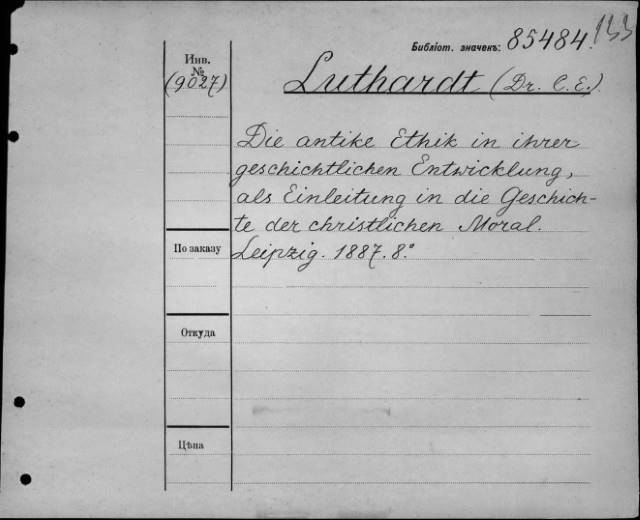 Библіот. значекъ: 85484. 133
Инв.
№
(9027)
Luthardt (Dr. C. E.)
Die antike Ethik in ihrer
geschichtlichen Entwicklung,
als Einleitung in die Geschich-
te der christlichen Moral.
По заказу
Leipzig. 1887. 8°
Откуда
Цѣна